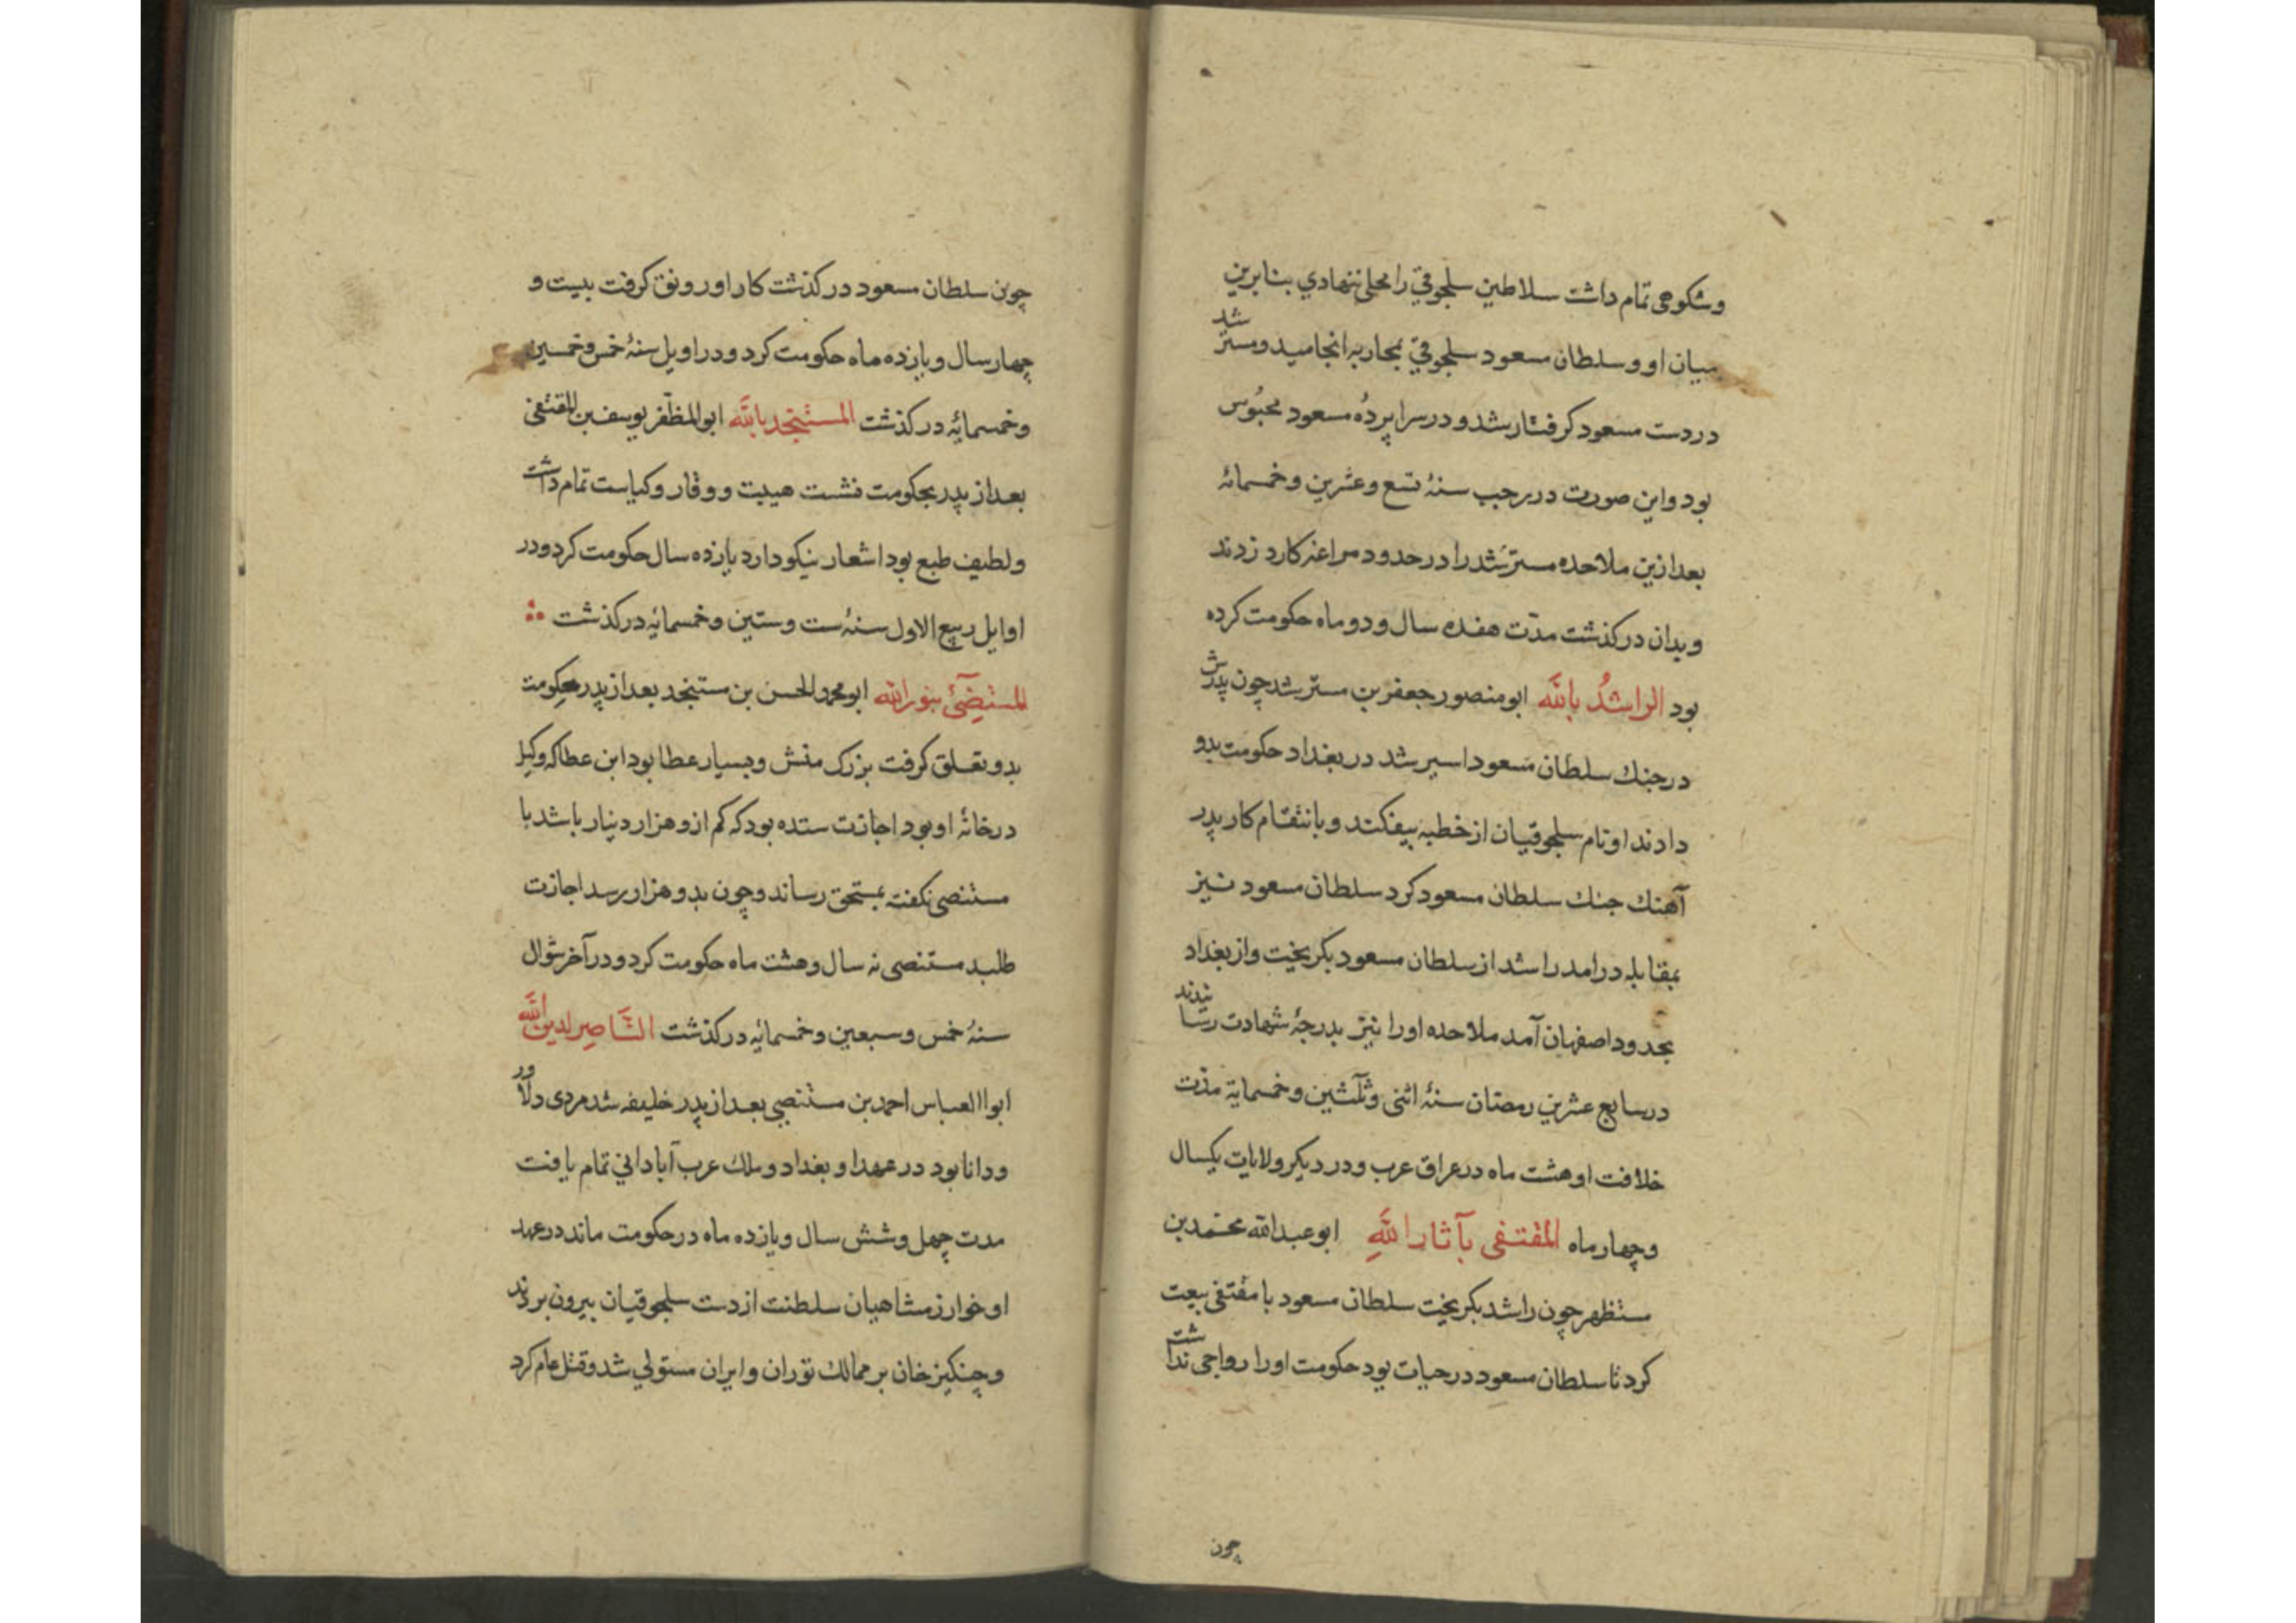 وشکوهی تمام داشت سلاطین سلجوقي را محلی ننهادي بنابرین
میان او و سلطان مسعود سلجوقي بمحاربه انجامید و مسترشد
در دست مسعود کرفتار شد و در سراپردهٔ مسعود محبُوس
بود و این صورت در رجب سنهٔ تسع وعشرین وخمسمائه
بعد ازین ملاحده مسترشَد را در حدود مراغه کارد زدند
و بدان در کذشت مدّت هفده سال و دو ماه حکومت کرده
بود الراشدُ باللّه ابو منصور جعفر بن مسترشد چون پدرش
در جنك سلطان مَسعود اسیر شد در بغداد حکومت بدو
دادند او نام سلجوقیان از خطبه بیفکند و بانتقام کار پدر
آهنك جنك سلطان مسعود کرد سلطان مسعود نیز
بمقابله درامد راشد از سلطان مسعود بکریخت و از بغداد
بحدود اصفهان آمد ملاحده او را نیز بدرجهٔ شهادت رسانیدند
در سابع عشرین رمضان سنهٔ اثنی وثلٰثین وخمسمایة مدّت
خلافت او هشت ماه در عراق عرب و در دیکر ولایات یکسال
و چهار ماه المقتفی بآثار اللّهِ ابو عبد الله محمّد بن
مستظهر چون راشد بکریخت سلطان مسعود با مقتفی بیعت
کرد تا سلطان مسعود در حیات بود حکومت او را رواجی نداشت
چون
چون سلطان مسعود در کذشت کار او رونق کرفت بیست و
چهار سال و یازده ماه حکومت کرد و در اویل سنهٔ خمس وخمسین
وخمسمائهٔ در کذشت المستنجد باللّه ابو المظفّر یوسف بن المقتفی
بعد از پدر بحکومت نشست هیبت و وقار و کیاست تمام داشت
و لطیف طبع بود اشعار نیکو دارد یازده سال حکومت کرد و در
اوایل ربیع الاول سنهٔ ست وستین وخمسمایٔه در کذشت
المستضٓیٔ بنور الله ابو محمد الحسن بن مستنجد بعد از پدر حکومت
بدو تعلق کرفت بزرك منش و بسیار عطا بود ابن عطا که وکیل
در خانهٔ او بود اجازت ستده بود که کم از دو هزار دینار باشد با
مستنصی نکفته بمستحق رساند و چون بدو هزار رسد اجازت
طلبد مستنصی نه سال و هشت ماه حکومت کرد و در آخر شوّال
سنهُٔ خمس وسبعین وخمسمائه در کذشت النَّاصِر لدین اللّه
ابو االعباس احمد بن مستنصی بعد از پدر خلیفه شد مردی دلاور
و دانا بود در عهد او بغداد و ملك عرب آبادانی تمام یافت
مدت چهل و شش سال و یازده ماه در حکومت ماند در عهد
او خوارزمشاهیان سلطنت از دست سلجوقیان بیرون بردند
و چنکیز خان بر ممالك توران و ایران مستولي شد و قتل عام کرد